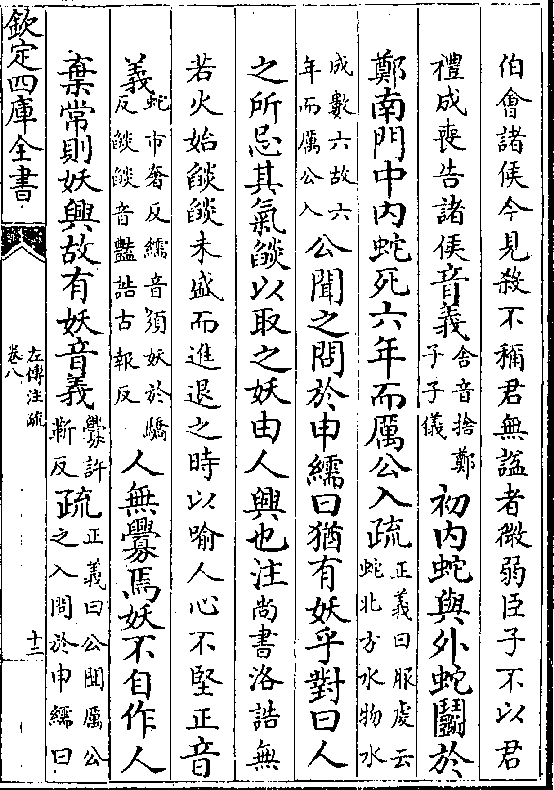 伯會諸侯今見殺不稱君無諡者微弱臣子不以君
禮成喪告諸侯音義舍音捨鄭子子儀初内蛇與外蛇鬬於
鄭南門中内蛇死六年而厲公入疏正義曰服虔云蛇北方水物水
成數六故六年而厲公入公聞之問於申繻曰猶有妖乎對曰人
之所忌其氣燄以取之妖由人興也注尚書洛誥無
若火始燄燄未盛而進退之時以喻人心不堅正音
義蛇市奢反繻音須妖於驕反燄燄音豔誥古報反人無釁焉妖不自作人
棄常則妖興故有妖音義釁許靳反疏正義曰公聞厲公之入問於申繻曰
欽定四庫全書
左傳注疏
卷八
十二